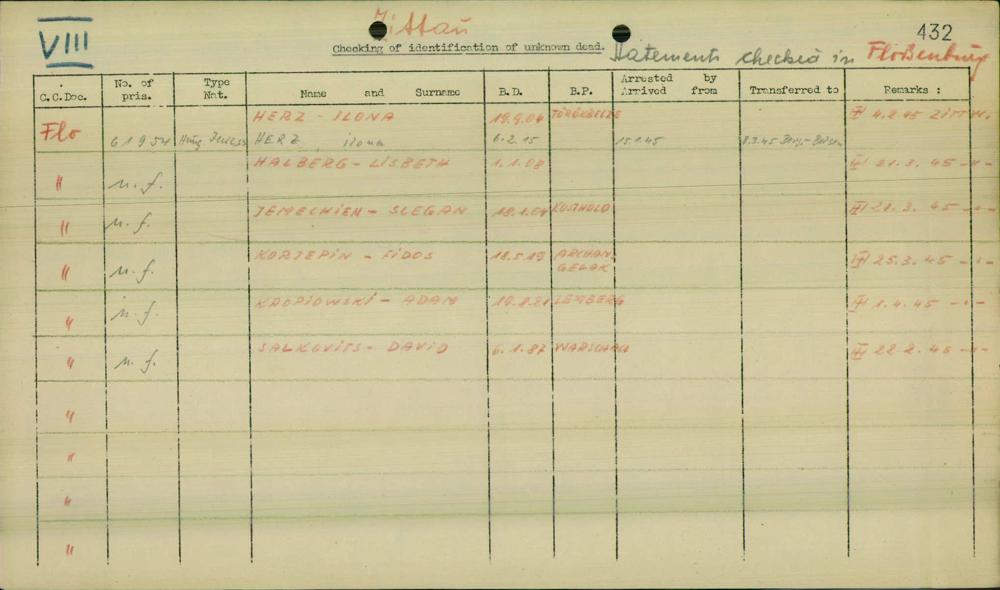 VIII
Zittau
432
Checking of identification of unknown dead. Statements checked in Floßenburg
C.C.Doc. No. of pris. Type Nat. Name and Surname B.D. B.P. Arrested by Arrived from Transferred to Remarks :
HERZ - ILONA 19.9.04 TÖRÖKBELZE 4.2.45 ZITTAU.
Flo 61954 Hung. Jewess HERZ ilona 6.2.15 15.1.45 8.3.45 Berg.-Belsen
HALBERG - LISBETH 1.1.08 21.3.45 -"-
" n.f.
JEMECHIEN - SLEGAN 18.1.04 KOSTHOLD 21.3.45 -"-
" n.f.
KORJEPIN - FIDOS 18.5.19 ARCHANGELSK 25.3.45 -"-
" n.f.
KROPIOWSKI - ADAM LEMBERG 1.4.45 -"-
" n.f.
SALKOVITS - DAVID 6.1.87 WARSCHAU 22.2.45 -"-
" n.f.
"
"
"
"